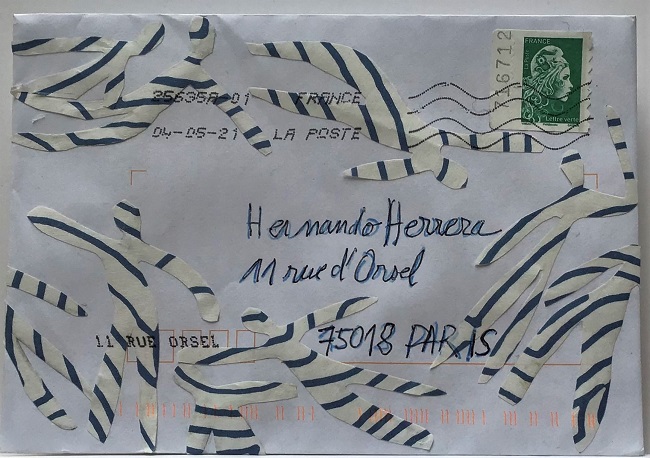 716712
FRANCE
La Poste
Lettre verte
26635A-01 FRANCE
04-05-21 LA POSTE
Hernando Herrera
11 rue d'Orsel
75018 PARIS
11 RUE ORSEL